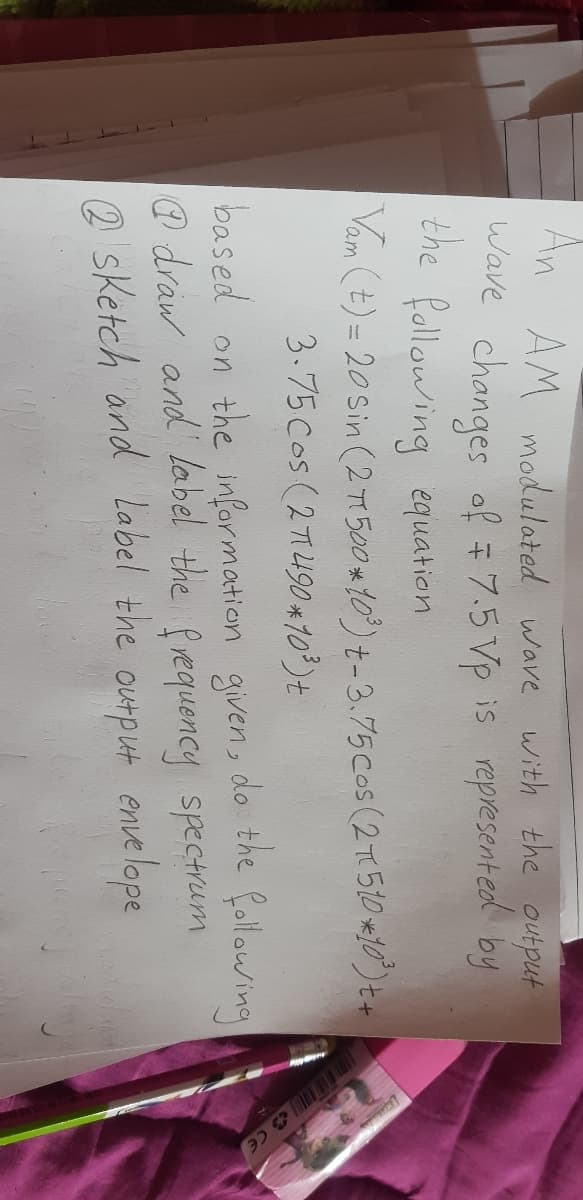 An AM modulated wave with the output
wave changes of ∓ 7.5 Vp is represented by
the following equation
Vam (t) = 20 sin (2π500*10³)t - 3.75cos (2π510*10³)t +
3.75cos (2π490*10³)t
based on the information given, do the following
① draw and label the frequency spectrum
② sketch and label the output envelope
CE